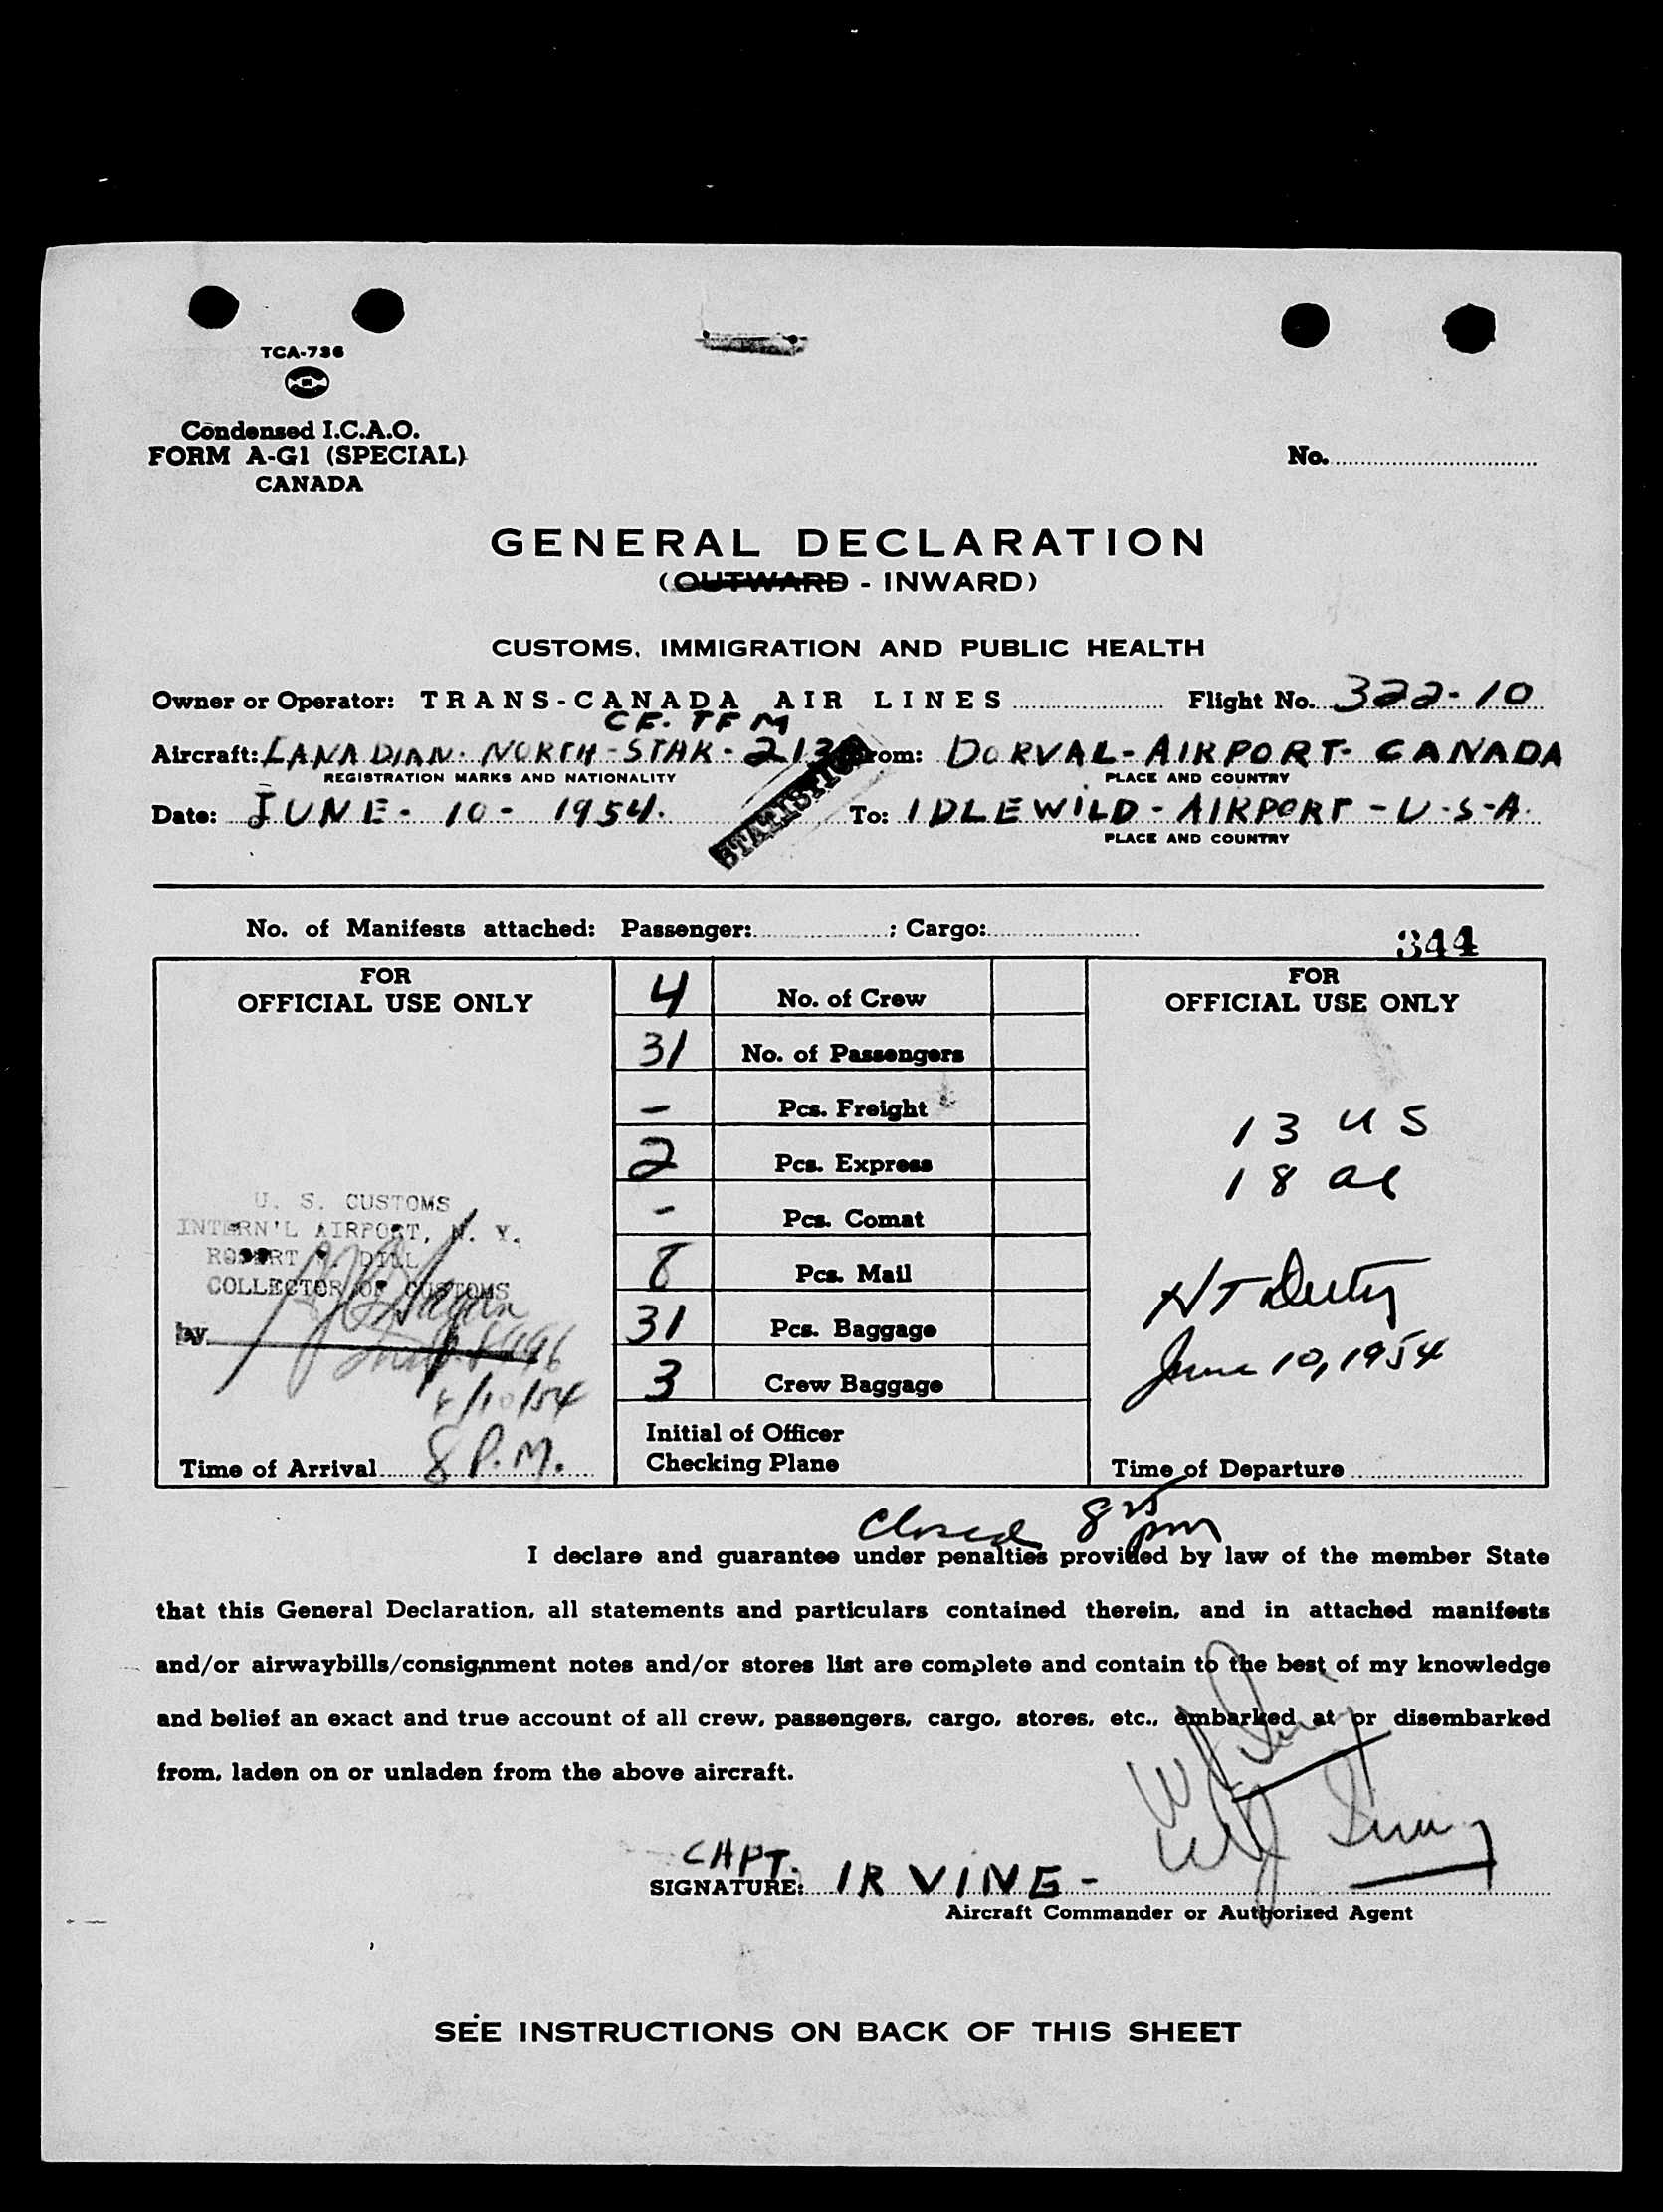 TCA-736
Condensed I.C.A.O.
FORM A-G1 (SPECIAL)
CANADA
No.
GENERAL DECLARATION
(OUTWARD - INWARD)
CUSTOMS, IMMIGRATION AND PUBLIC HEALTH
Owner or Operator: TRANS-CANADA AIR LINES Flight No. 322-10
CF-TFM
Aircraft: CANADIAN-NORTH-STAR-213 From: DORVAL-AIRPORT-CANADA
REGISTRATION MARKS AND NATIONALITY PLACE AND COUNTRY
STATISTICS
Date: JUNE-10-1954. To: IDLEWILD-AIRPORT-U-S-A.
PLACE AND COUNTRY
No. of Manifests attached: Passenger: ; Cargo:
344
FOR
OFFICIAL USE ONLY
U. S. CUSTOMS
INTERN'L AIRPORT, N. Y.
ROBERT DILL
COLLECTOR OF CUSTOMS
by
6/10/54
Time of Arrival 8 P.M.
4 No. of Crew
31 No. of Passengers
- Pcs. Freight
2 Pcs. Express
- Pcs. Comat
8 Pcs. Mail
31 Pcs. Baggage
3 Crew Baggage
Initial of Officer
Checking Plane
FOR
OFFICIAL USE ONLY
13 US
18 al
June 10, 1954
Time of Departure
Closed 8 25 pm
I declare and guarantee under penalties provided by law of the member State
that this General Declaration, all statements and particulars contained therein, and in attached manifests
and/or airwaybills/consignment notes and/or stores list are complete and contain to the best of my knowledge
and belief an exact and true account of all crew, passengers, cargo, stores, etc., embarked at or disembarked
from, laden on or unladen from the above aircraft.
CAPT.
SIGNATURE: IRVING- WJ Irving
Aircraft Commander or Authorized Agent
SEE INSTRUCTIONS ON BACK OF THIS SHEET